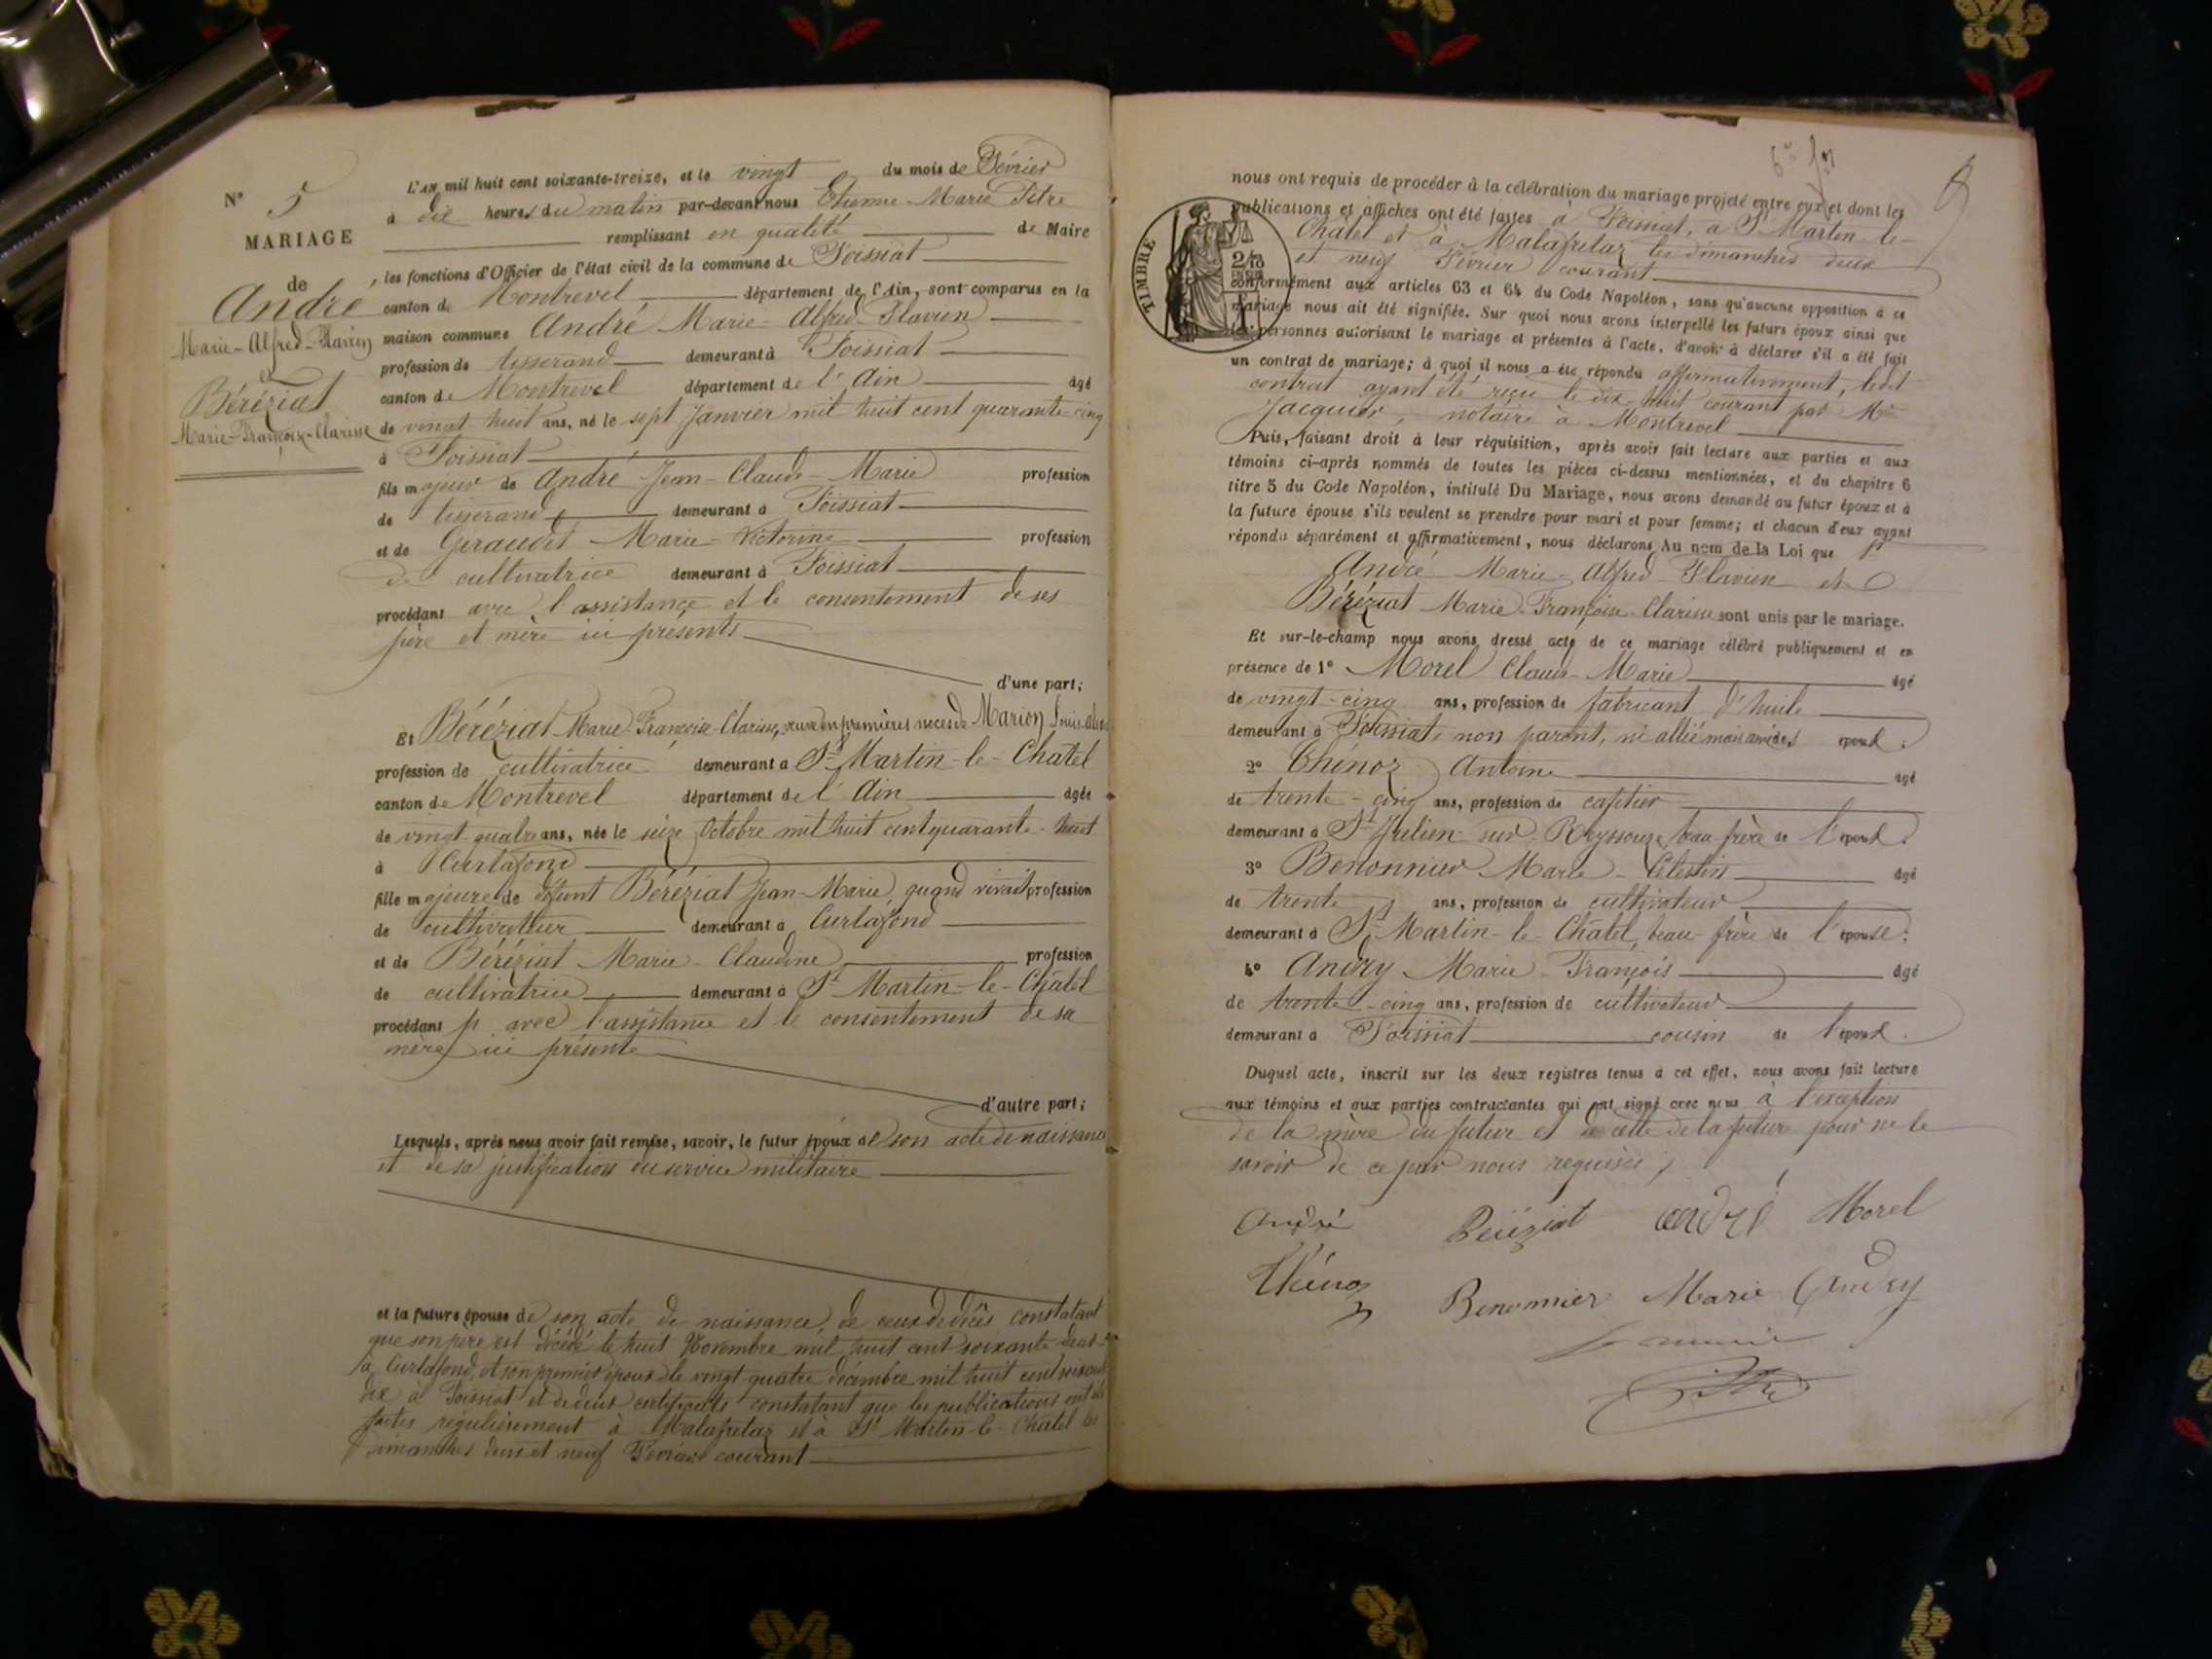 N° 5
MARIAGE
de
André
Marie-Alfred-Flavien
et
Béréziat
Marie-Françoise-Clarisse
L'AN mil huit cent soixante-treize, et le vingt du mois de Février
à dix heures du matin par-devant nous Etienne-Marie Pitre
remplissant en qualité de Maire
, les fonctions d'Officier de l'état civil de la commune de Foissiat
canton de Montrevel département de l'Ain, sont comparus en la
maison commune André Marie-Alfred-Flavien
profession de tisserand demeurant à Foissiat
canton de Montrevel département de l'Ain âgé
de vingt huit ans, né le sept Janvier mil huit cent quarante cinq
à Foissiat
fils majeur de André Jean-Claude-Marie profession
de tisserand demeurant à Foissiat
et de Giraudit Marie-Victorine profession
de cultivatrice demeurant à Foissiat
procédant avec l'assistance et le consentement de ses
père et mère ici présents
d'une part;
Et Béréziat Marie Françoise-Clarisse, veuve en premières noces de Marion Louis
profession de cultivatrice demeurant à St Martin-le-Chatel
canton de Montrevel département de l'Ain âgée
de vingt-quatre ans, née le seize Octobre mil huit cent quarante-huit
à Curtafond
fille majeure de défunt Béréziat Jean-Marie, quand vivait profession
de cultivateur demeurant à Curtafond
et de Béréziat Marie-Claudine profession
de cultivatrice demeurant à St Martin-le-Châtel
procédant avec l'assistance et le consentement de sa
mère ici présente
d'autre part;
Lesquels, après nous avoir fait remise, savoir, le futur époux de son acte de naissance
et de sa justification du service militaire
et la future épouse de son acte de naissance, de ceux de décès constatant
que son père est décédé le huit Novembre mil huit cent soixante-deux
à Curtafond, et son premier époux le vingt quatre décembre mil huit cent soixante
dix à Foissiat et de deux certificats constatant que les publications ont été
faites régulièrement à Malafretaz et à St Martin-le-Chatel les
dimanches deux et neuf Février courant
nous ont requis de procéder à la célébration du mariage projeté entre eux et dont les
publications et affiches ont été faites à Foissiat, à St Martin-le-
Châtel et à Malafretaz les dimanches deux
et neuf Février courant
conformément aux articles 63 et 64 du Code Napoléon, sans qu'aucune opposition à ce
mariage nous ait été signifiée. Sur quoi nous avons interpellé les futurs époux ainsi que
les personnes autorisant le mariage et présentes à l'acte, d'avoir à déclarer s'il a été fait
un contrat de mariage; à quoi il nous a été répondu affirmativement, ledit
contrat ayant été reçu le dix huit courant par Me
Jacquier, notaire à Montrevel
TIMBRE
Puis, faisant droit à leur réquisition, après avoir fait lecture aux parties et aux
témoins ci-après nommés de toutes les pièces ci-dessus mentionnées, et du chapitre 6
titre 5 du Code Napoléon, intitulé Du Mariage, nous avons demandé au futur époux et à
la future épouse s'ils veulent se prendre pour mari et pour femme; et chacun d'eux ayant
répondu séparément et affirmativement, nous déclarons Au nom de la Loi que
André Marie-Alfred-Flavien et
Béréziat Marie-Françoise-Clarisse sont unis par le mariage.
Et sur-le-champ nous avons dressé acte de ce mariage célébré publiquement et en
présence de 1° Morel Claude-Marie âgé
de vingt-cinq ans, profession de fabricant d'huile
demeurant à Foissiat, non parent, ni allié mais ami des époux;
2° Thénoz Antoine âgé
de trente-cinq ans, profession de cafetier
demeurant à St Julien-sur-Reyssouze, beau frère de l'époux;
3° Benonnier Marie-Célestin âgé
de trente ans, profession de cultivateur
demeurant à St Martin-le-Châtel, beau-frère de l'épouse;
4° Andry Marie-François âgé
de trente-cinq ans, profession de cultivateur
demeurant à Foissiat cousin de l'époux.
Duquel acte, inscrit sur les deux registres tenus à cet effet, nous avons fait lecture
aux témoins et aux parties contractantes qui ont signé avec nous à l'exception
de la mère du futur et de celle de la future pour ne le
savoir de ce par nous requises,
André Béréziat andré Morel
Thénoz Benonnier Marie Andry
Le maire
Pitre